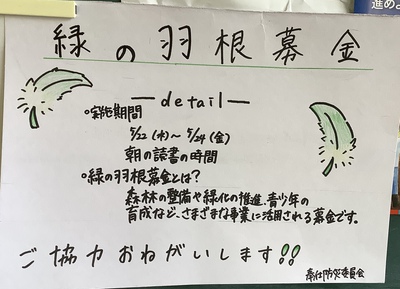 進めよ
緑の羽根募金
—detail—
○実施期間
5/22(水)～5/24(金)
朝の読書の時間
○緑の羽根募金とは?
森林の整備や緑化の推進、青少年の
育成など、さまざまな事業に活用される募金です。
ご協力おねがいします!!
奉仕防災委員会